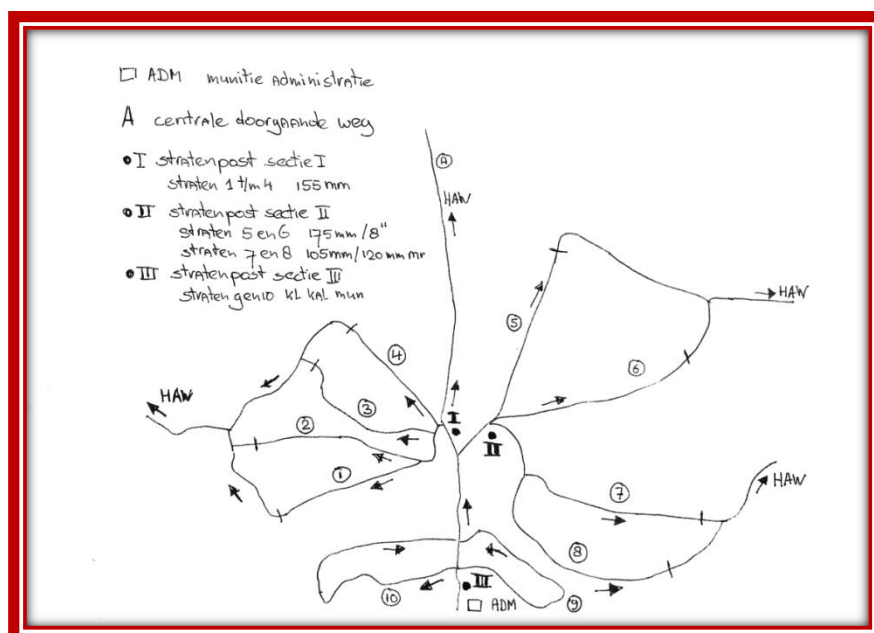 □ ADM munitie administratie
A centrale doorgaande weg
• I stratenpost sectie I
straten 1 t/m 4 155 mm
• II stratenpost sectie II
straten 5 en 6 175 mm/8"
straten 7 en 8 105mm/120 mm mr
• III stratenpost sectie III
straten 9 en 10 KL KAL mun
A
HAW
5
HAW
4
6
HAW
3
I
2
II
1
7
HAW
8
III
10
□ ADM
9